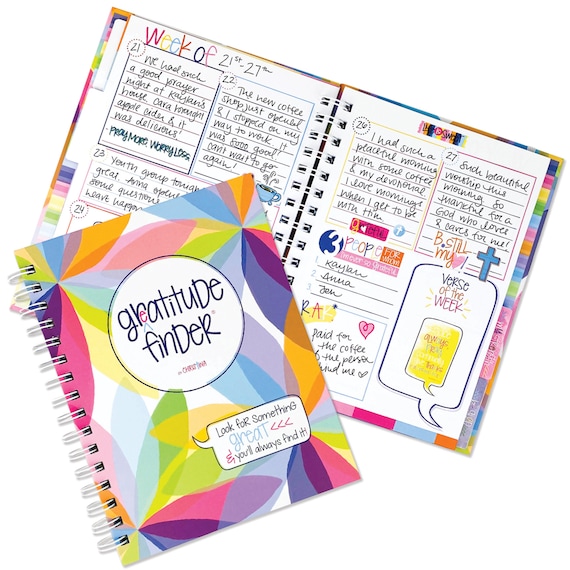 Week of 21st-27th
21
We had such
a good prayer
night at Kaylan's
house. Cara brought
apple cider & it
was delicious!
PRAY MORE. WORRY LESS.
22
The new coffee
shop just opened
& I stopped on my
way to work. It
was sooo good!
can't wait to go
again!
23
Youth group tough
great. Anna opene
some questions
leave happ
24
26
I had such a
peaceful morning
with some coffee
& my devotional.
I love mornings
when I get to be
with Him
grateful
3 PEOPLE FOR WHOM
I'm ever so grateful
1 Kaylan
2 Anna
3 Jen
RA
Paid for
the coffee
of the person
hind me
27
Such beautiful
worship this
morning. So
grateful for a
God who loves
& cares for me!
B STILL
my
VERSE
OF THE
WEEK
always
gr(e)atitude
finder
BY CHRISTINA
Look for something
great <<<
& you'll always find it!